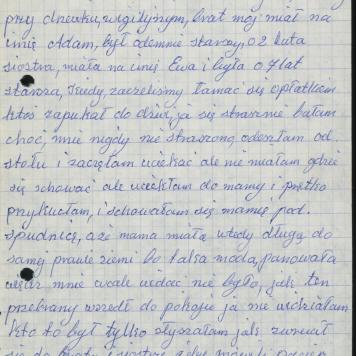 przy drzewku, wigilijnym, brat mój miał na
imię Adam, był odemnie starszy, o 2 lata
siostra, miała na imię Ewa i była o 7 lat
starsza, kiedy, zaczeliśmy łamać się opłatkiem
ktoś zapukał do drzwi, ja się strasznie bałam
choć, mnie nigdy nie straszono, odeszłam od
stołu i zaczęłam uciekać ale nie miałam gdzie
się schować ale uciekłam do mamy i prętko
przykucłam, i schowałam się mamię pod.
spudnicę, a że mama miała wtedy długą do
samej prawie ziemi bo taka moda, panowała
więc mnie wcale widać nie było, jak ten
przebrany wszedł do pokoju ja nie widziałam
kto to był tylko słyszałam jak zwracał
się do brata i siostry żeby mówili pacierz